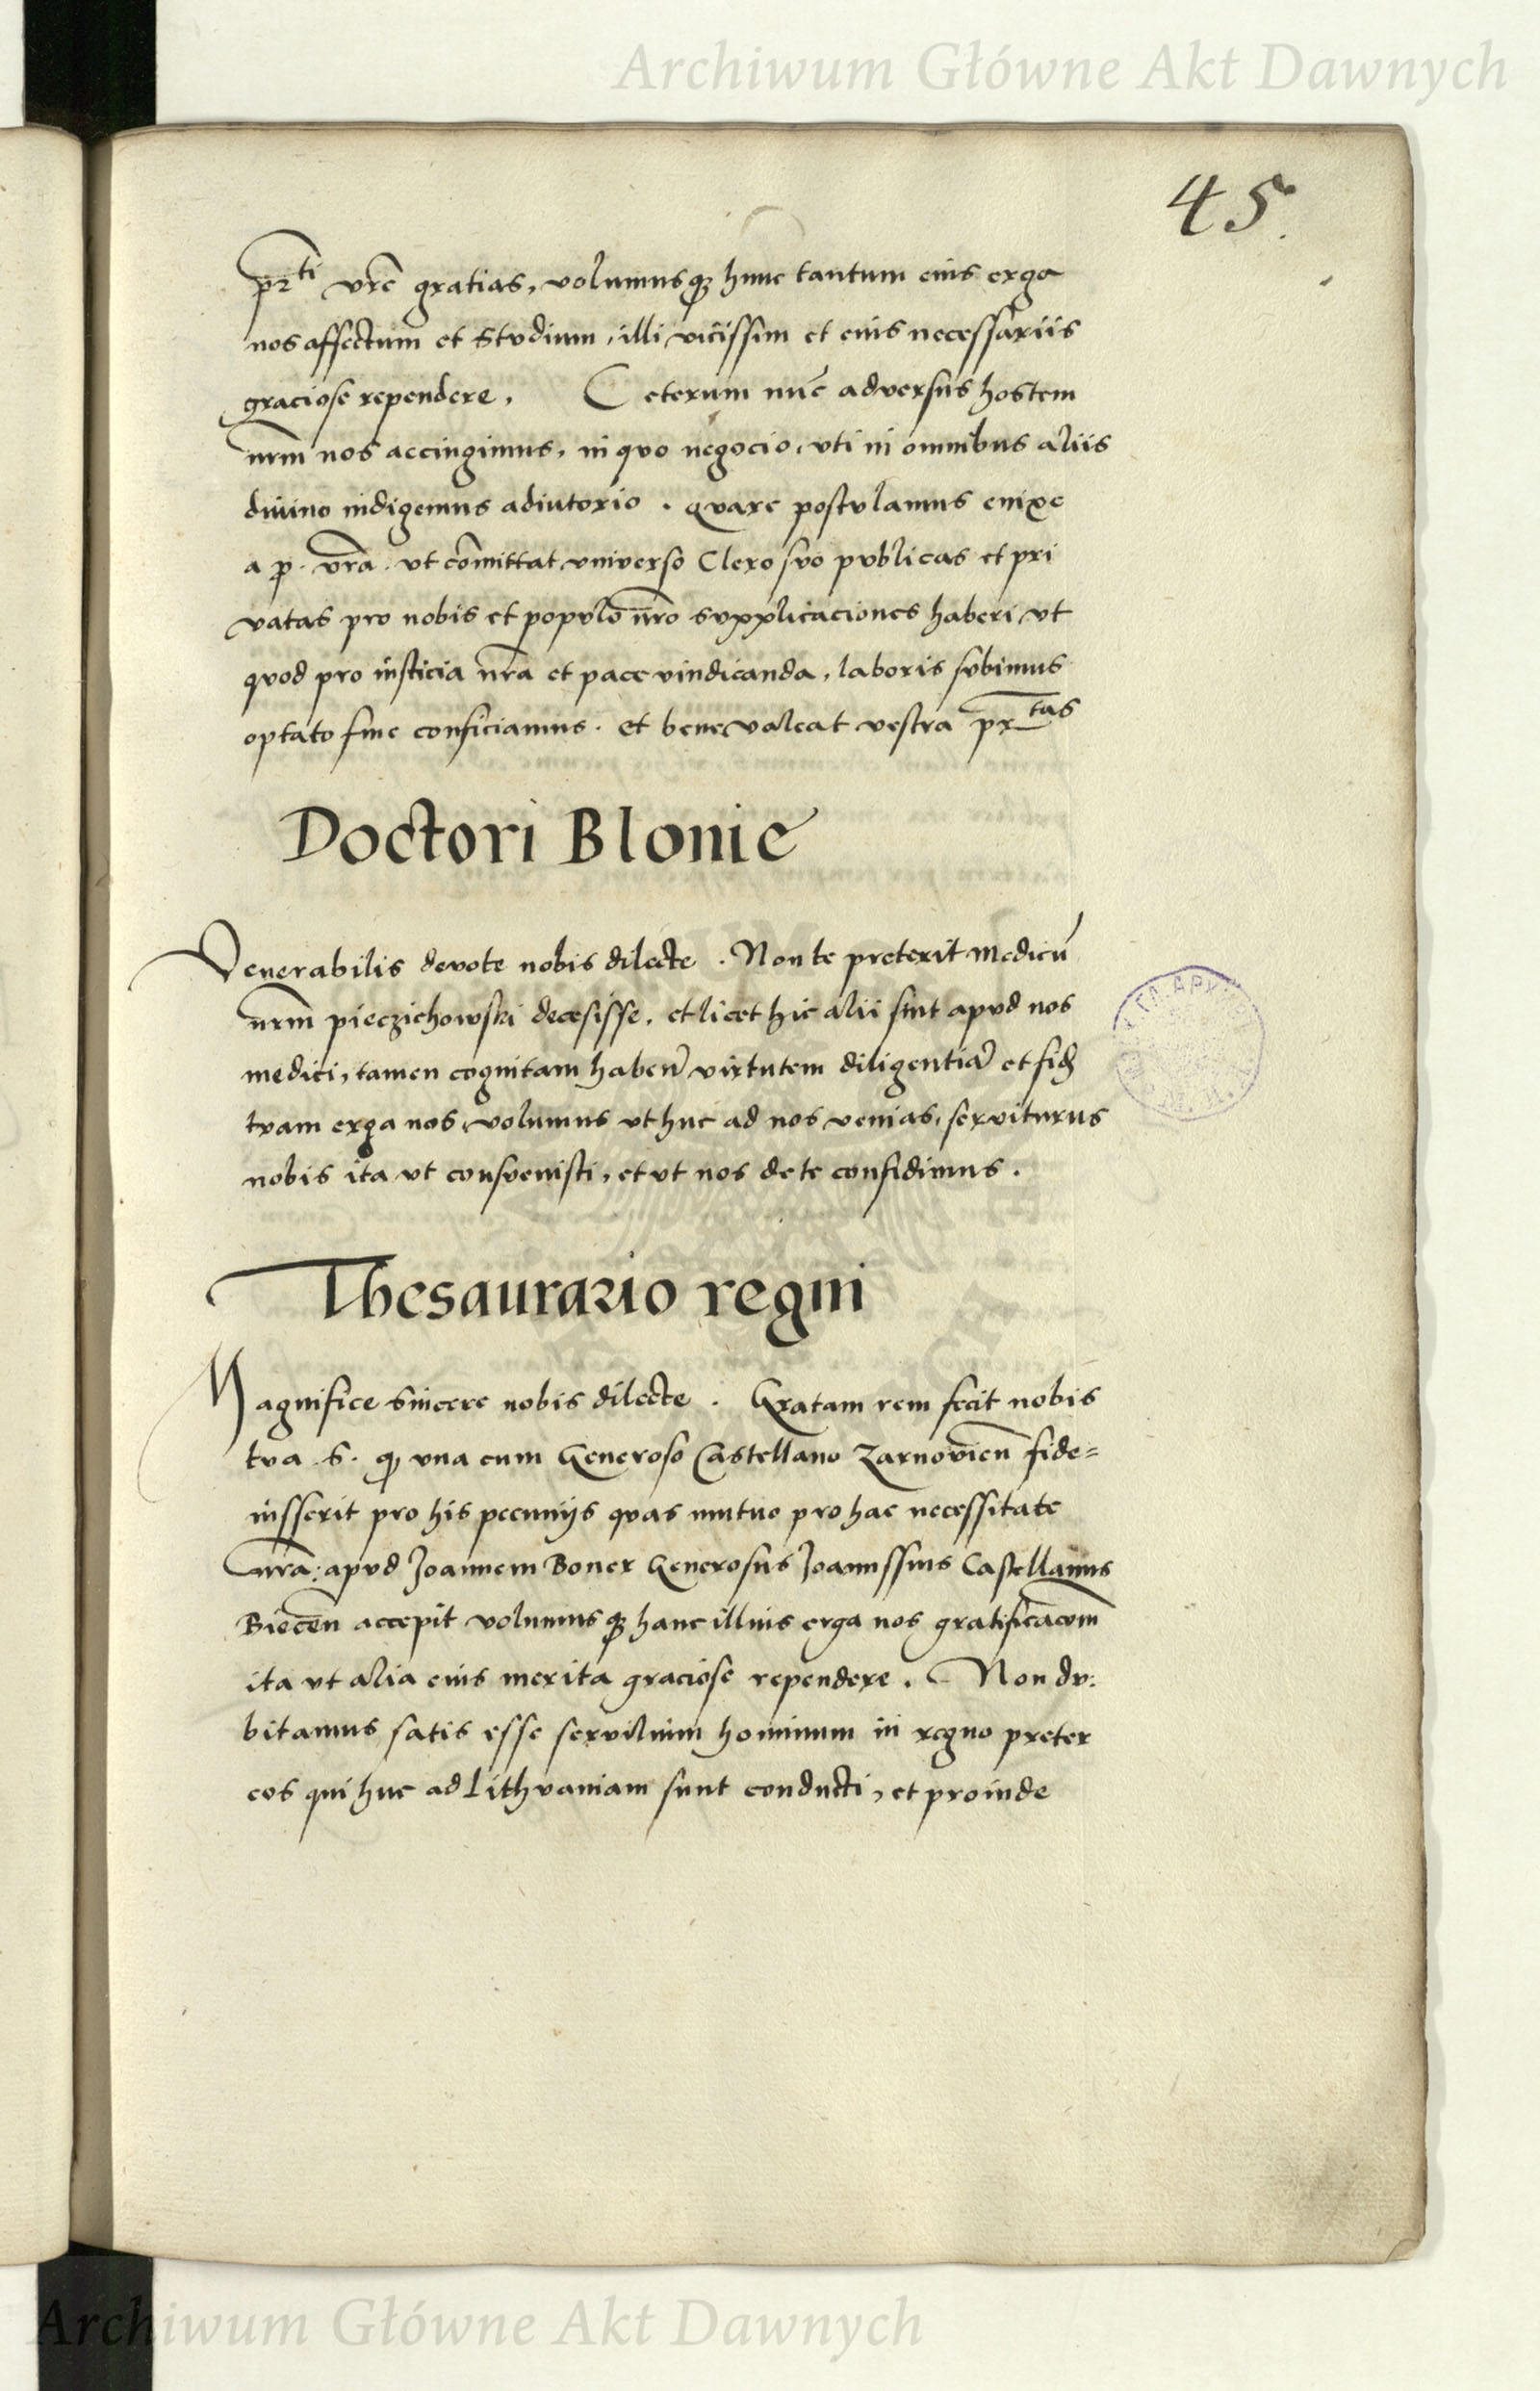 Archiwum Główne Akt Dawnych
45.
pr̃ti vr̃e gratias, volumusq; hunc tantum eius erga
nos affectum et Studium, illi vicissim et eius necessariis
graciose rependere. Ceterum nũc adversus hostem
nr̃m nos accingimus, in quo negocio, vti in omnibus aliis
divino indigemus adiutorio. quare postulamus enixe
a p. vr̃a. vt cõmittat vniverso Clero suo publicas et pri
vatas pro nobis et populo nr̃o supplicaciones haberi, vt
quod pro iusticia nr̃a et pace vindicanda, laboris subimus
optato fine conficiamus. Et bene valeat vestra pr̃tas
Doctori Blonie
Venerabilis devote nobis dilecte. Non te preterit Medicũ
nr̃m pieczichowski decesisse, et licet hic alii sint apud nos
medici, tamen cognitam habem̃ virtutem diligentiã et fid̃
tuam erga nos, volumus vt huc ad nos venias, serviturus
nobis ita vt consuevisti, et vt nos de te confidimus.
Thesaurario regni
Magnifice Sincere nobis dilecte. Gratam rem fecit nobis
tua S. q, vna cum Generoso Castellano Zarnovien̄ fide=
iusserit pro his pecuniis quas mutuo pro hac necessitate
nr̃a: apud Joannem Boner Generosus Joannssius Castellanus
Biecen̄ accepit volumusq; hanc illius erga nos gratificac̃om
ita vt alia eius merita graciose rependere. Non du:
bitamus satis esse servilium hominum in regno preter
eos qui huc ad Lithvaniam sunt conducti, et proinde
Archiwum Główne Akt Dawnych